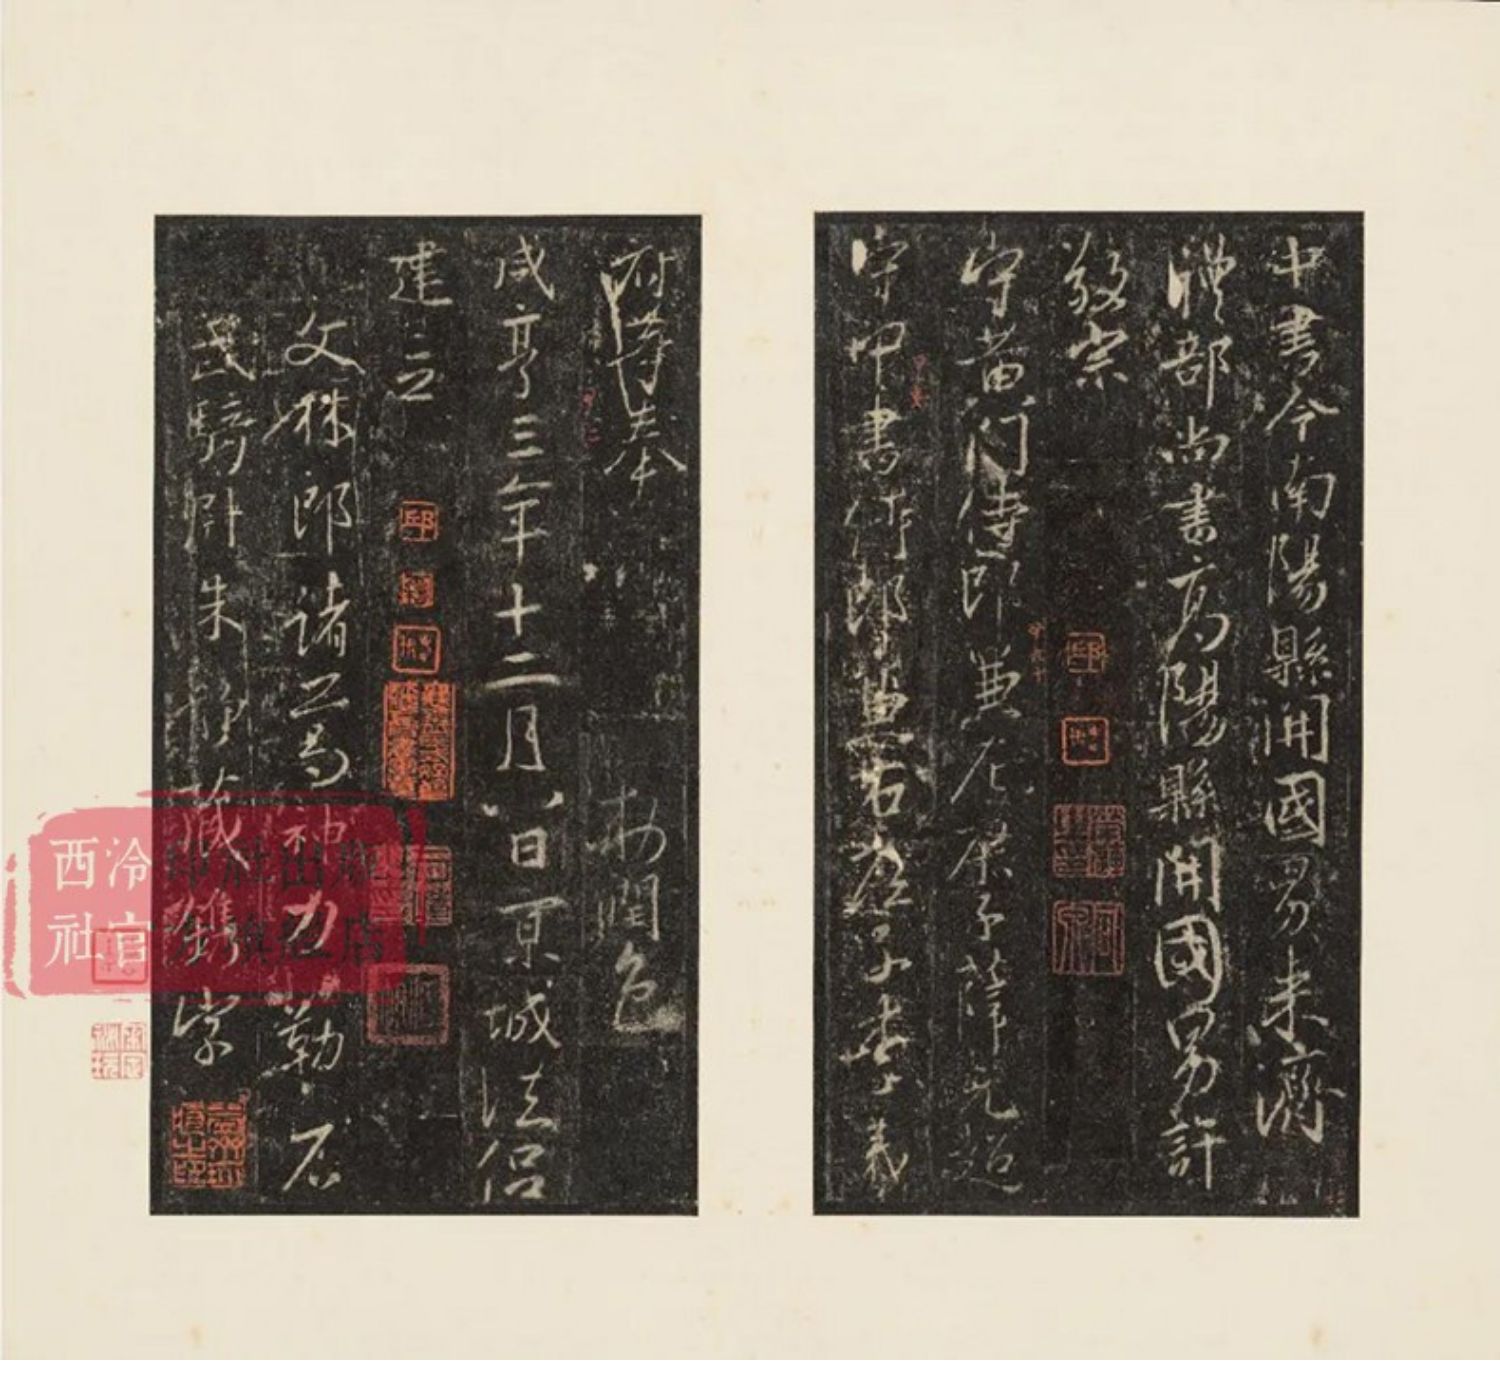 中書令南陽縣開國男来濟
禮部尚書高陽縣開國男許
敬宗
守黃門侍郎兼左庶子薛元超
守中書侍郎兼右庶子李義
府等奉 勅潤色
咸亨三年十二月八日京城法侶
建立
文林郎諸葛神力勒石
武騎尉朱靜藏鐫字
西泠印社出版
社官方旗艦店